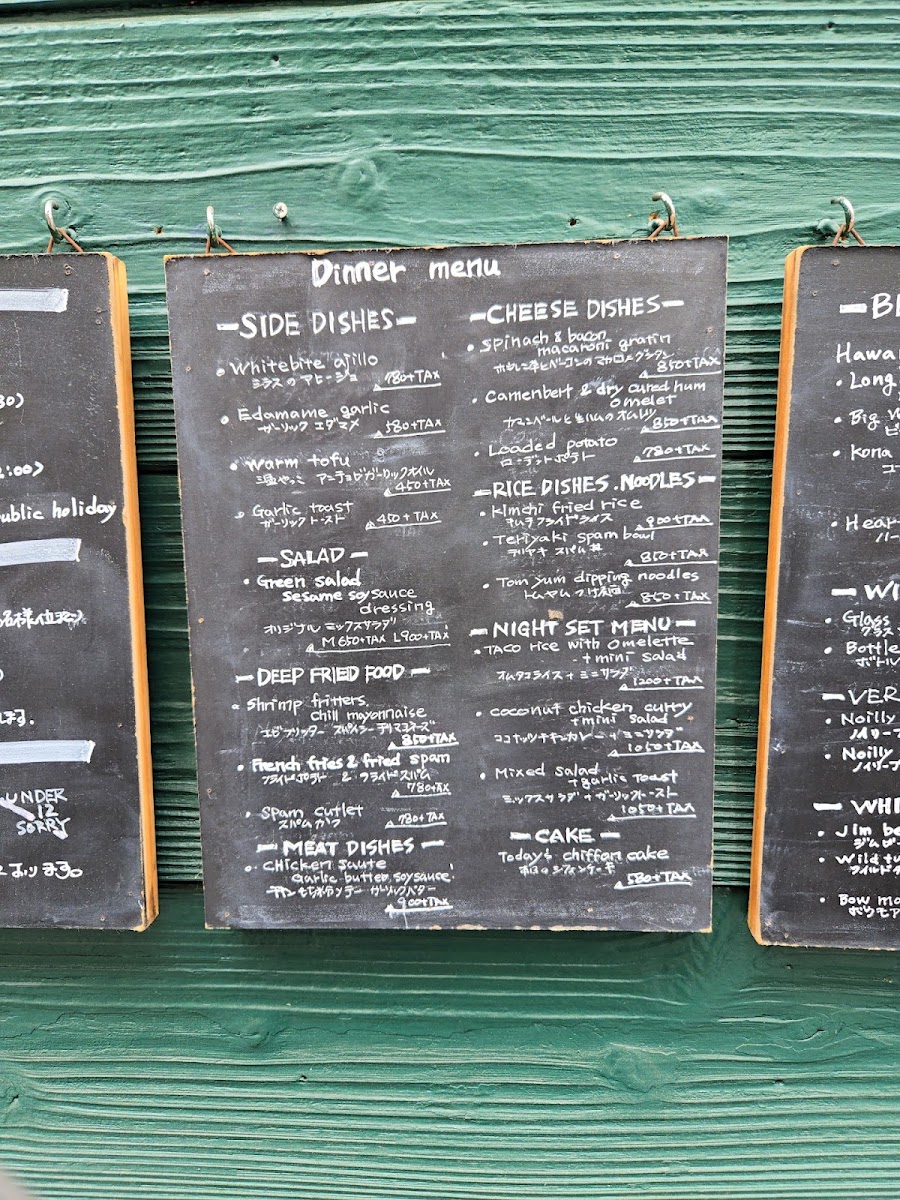 30)
2:00)
ublic holiday
名様位迄)
UNDER
12
SORRY
Dinner menu
SIDE DISHES
• Whitebite ajillo
シラスのアヒージョ
780+TAX
• Edamame garlic
ガーリック エダマメ
580+TAX
• Warm tofu
塩やっこ アンチョビガーリックオイル
450+TAX
• Garlic toast
ガーリックトースト
450+TAX
SALAD
• Green salad
sesame soy sauce
dressing
オリジナル ミックスサラダ
M 650+TAX L 900+TAX
DEEP FRIED FOOD
• Shrimp fritters,
chill mayonnaise
エビフリッター
850+TAX
• French fries & fried spam
フライドポテト & フライドスパム
780+TAX
• Spam cutlet
スパムカツ
780+TAX
MEAT DISHES
• Chicken saute
Garlic butter soy sauce
ガーリックバター
900+TAX
CHEESE DISHES
• Spinach & bacon
macaroni gratin
ほうれん草とベーコンのマカロニグラタン
850+TAX
• Camenbert & dry cured hum
omelet
カマンベールと生ハムのオムレツ
850+TAX
• Loaded potato
ローデットポテト
780+TAX
RICE DISHES . NOODLES
• Kimchi fried rice
キムチフライドライス
900+TAX
• Teriyaki spam bowl
テリヤキ スパム丼
850+TAX
• Tom yum dipping noodles
トムヤムつけ麺
850+TAX
NIGHT SET MENU
• TACO rice with omelette
+mini salad
オムタコライス + ミニサラダ
1200+TAX
• coconut chicken curry
+mini salad
ココナッツチキンカレー + ミニサラダ
1050+TAX
• Mixed salad
+garlic toast
ミックスサラダ + ガーリックトースト
1050+TAX
CAKE
Today's chiffon cake
本日のシフォンケーキ
580+TAX
BE
Hawai
• Long
• Big W
• Kona
• Hear
WI
• Glass
グラス
• Bottle
ボトル
VER
• Noilly
ノイリープ
• Noilly
ノイリープ
WHI
• Jim be
ジムビー
• Wild tu
ワイルドタ
• Bow mo
ボウモア